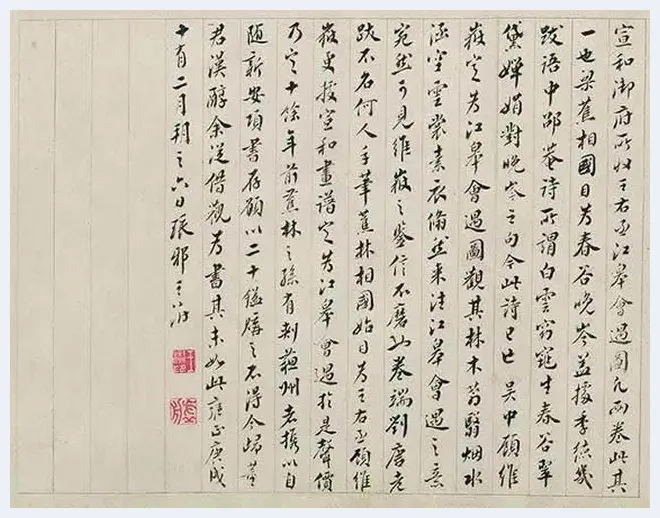 宣和御府所收王右丞江皋會遇圖凡兩卷此其
一也梁蕉相國目為春谷晚岑蓋據季
跋語中邵菴詩所謂白雲窈窕生春谷翠
黛嬋娟對晚岑之句今此詩已亡吳中顧維
嶽定為江皋會遇圖觀其林木蓊翳烟水
涵空雲裳素衣翛然来往江皋會遇之意
宛然可見維嶽之鑒信不磨也卷端劉唐老
跋不名何人手筆蕉林相國始目為王右丞顧維
嶽更援宣和畫譜定為江皋會遇於是聲價
乃定十餘年前蕉林之孫有刺蘇州者攜以自
隨新安項書存願以二十鎰購之不得今歸董
君漢醇余從借觀為書其末如此雍正庚戌
十有二月朔之六日琅邪王澍